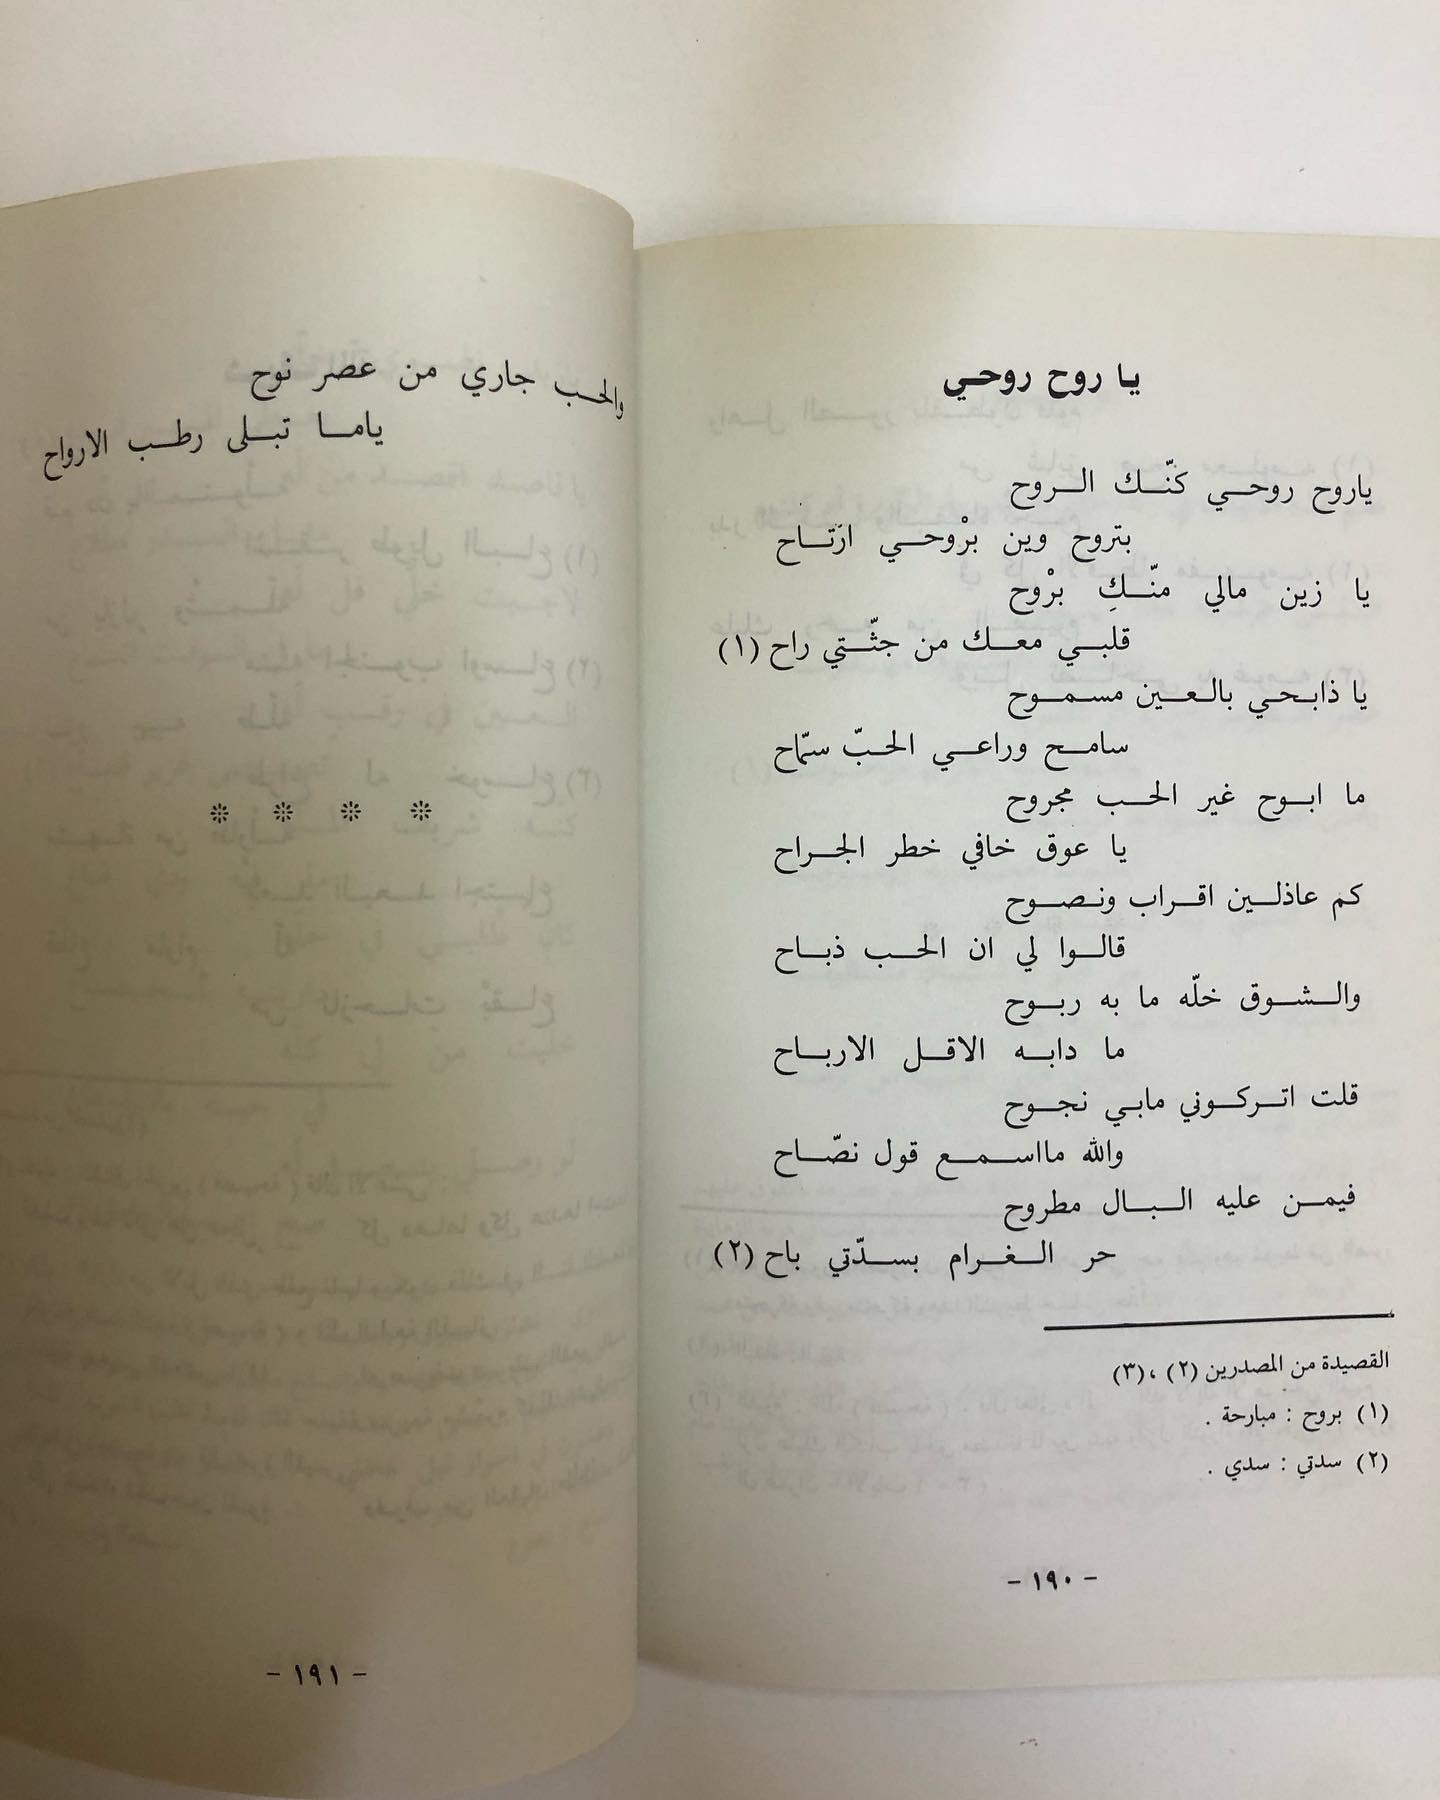 يا روح روحي
ياروح روحي كنّك الروح
بتروح وين برْوحي ارتاح
يا زين مالي منّكِ برْوح
قلبي معك من جثّتي راح (١)
يا ذابحي بالعين مسموح
سامح وراعي الحبّ سمّاح
ما ابوح غير الحب مجروح
يا عوق خافي خطر الجراح
كم عاذلين اقراب ونصوح
قالوا لي ان الحب ذباح
والشوق خلّه ما به ربوح
ما دابه الاقل الارباح
قلت اتركوني مابي نجوح
والله مااسمع قول نصّاح
فيمن عليه البال مطروح
حر الغرام بسدّتي باح (٢)
القصيدة من المصدرين (٢) ، (٣)
(١) بروح : مبارحة .
(٢) سدتي : سدي .
- ١٩٠ -
والحب جاري من عصر نوح
ياما تبلى رطب الارواح
- ١٩١ -